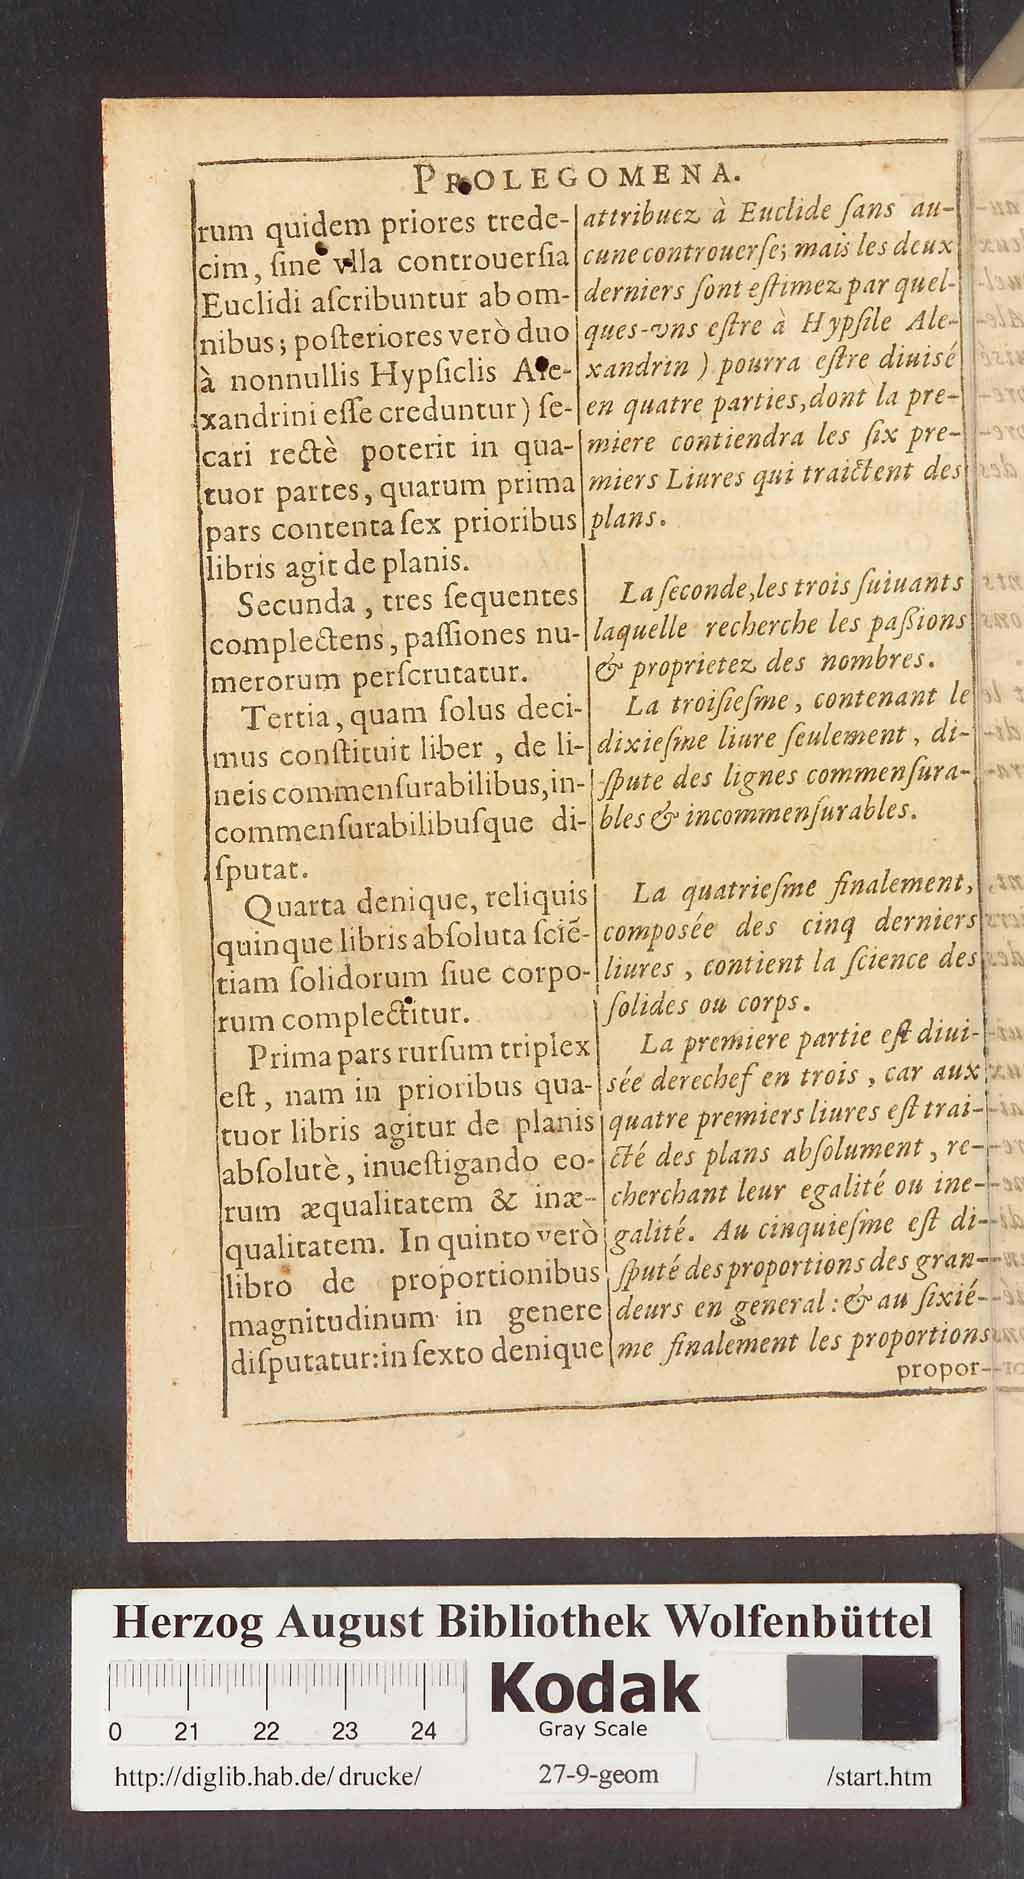 PROLEGOMENA.
rum quidem priores trede-
cim, ſine vlla controuerſia
Euclidi aſcribuntur ab om-
nibus; poſteriores verò duo
à nonnullis Hypſiclis Ale-
xandrini eſſe creduntur) ſe-
cari rectè poterit in qua-
tuor partes, quarum prima
pars contenta ſex prioribus
libris agit de planis.
Secunda, tres ſequentes
complectens, paſſiones nu-
merorum perſcrutatur.
Tertia, quam ſolus deci-
mus conſtituit liber, de li-
neis commenſurabilibus, in-
commenſurabilibuſque di-
ſputat.
Quarta denique, reliquis
quinque libris abſoluta ſciē-
tiam ſolidorum ſiue corpo-
rum complectitur.
Prima pars rurſum triplex
eſt, nam in prioribus qua-
tuor libris agitur de planis
abſolutè, inueſtigando eo-
rum æqualitatem & inæ-
qualitatem. In quinto verò
libro de proportionibus
magnitudinum in genere
diſputatur: in ſexto denique
attribuez à Euclide ſans au-
cune controuerſe; mais les deux
derniers ſont eſtimez par quel-
ques-vns eſtre à Hypſile Ale-
xandrin) pourra eſtre diuisé
en quatre parties, dont la pre-
miere contiendra les ſix pre-
miers Liures qui traictent des
plans.
La ſeconde, les trois ſuiuants
laquelle recherche les paſſions
& proprietez des nombres.
La troiſieſme, contenant le
dixieſme liure ſeulement, di-
ſpute des lignes commenſura-
bles & incommenſurables.
La quatrieſme finalement,
composée des cinq derniers
liures, contient la ſcience des
ſolides ou corps.
La premiere partie eſt diui-
sée derechef en trois, car aux
quatre premiers liures eſt trai-
cté des plans abſolument, re-
cherchant leur egalité ou ine-
galité. Au cinquieſme eſt di-
ſputé des proportions des gran-
deurs en general: & au ſixié-
me finalement les proportions
propor-
Herzog August Bibliothek Wolfenbüttel
Kodak
Gray Scale
0 21 22 23 24
http://diglib.hab.de/drucke/ 27-9-geom /start.htm